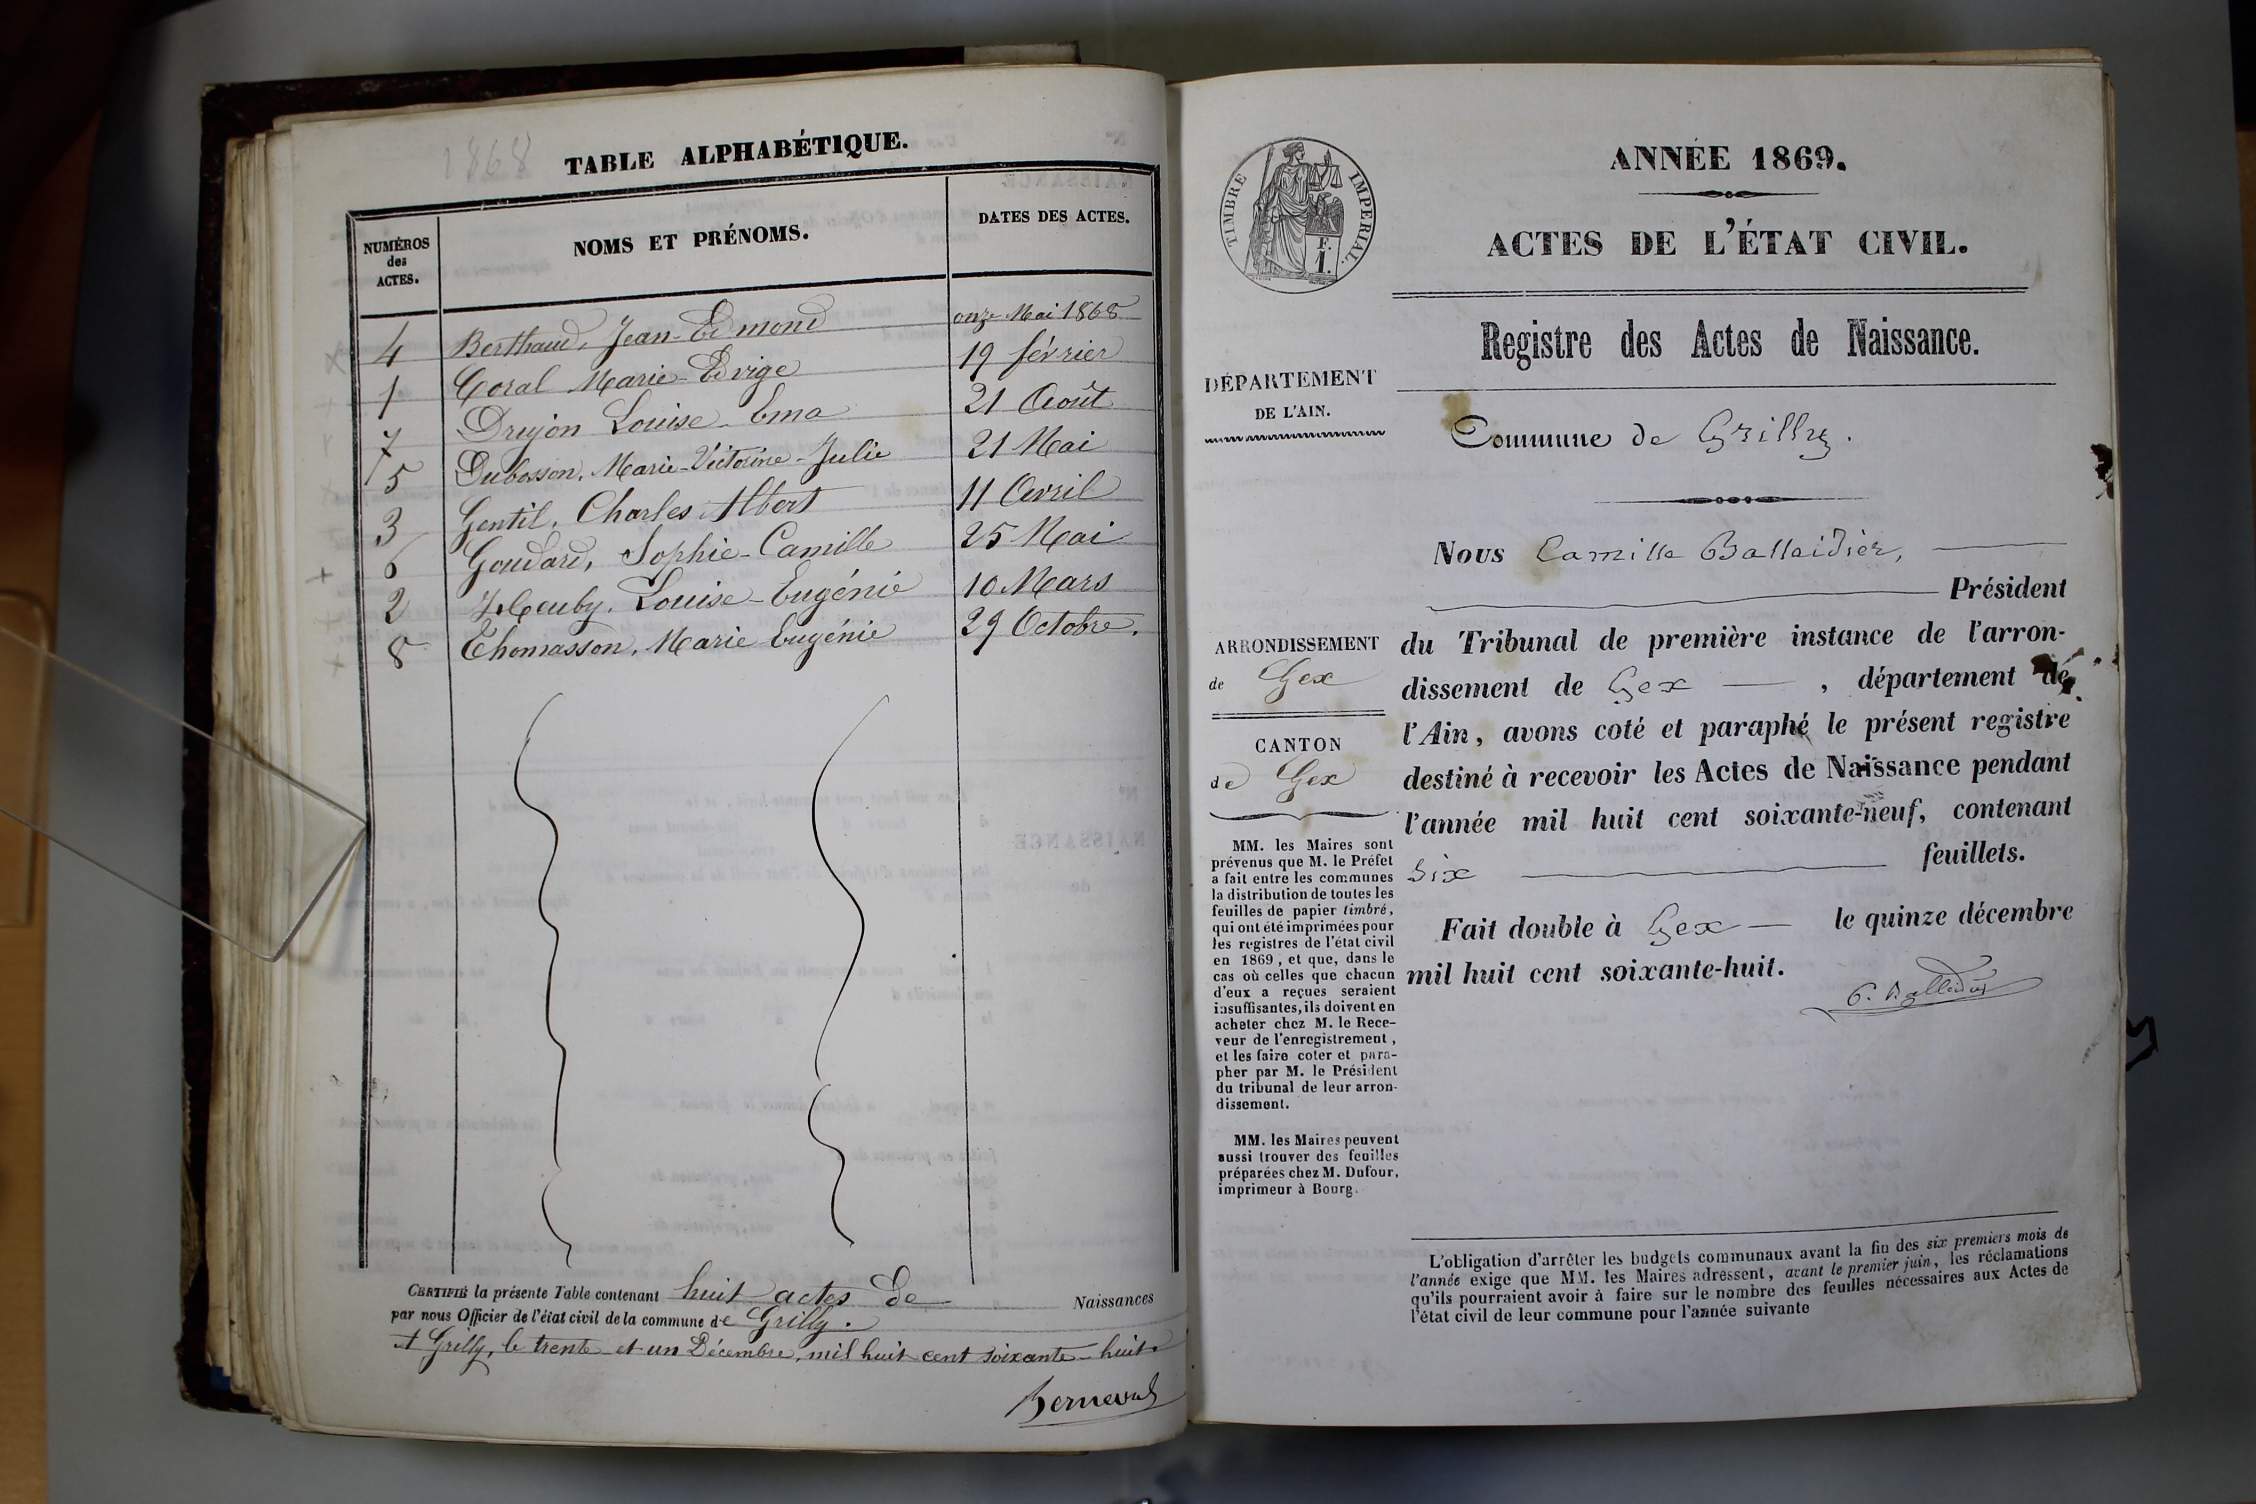 1868
TABLE ALPHABÉTIQUE.
NUMÉROS
des
ACTES.
NOMS ET PRÉNOMS.
DATES DES ACTES.
4 Berthaud, Jean-Edmond onze Mai 1868
1 Coral Marie-Edvige 19 février
7 Drujon Louise Ema 21 Août
5 Dubosson, Marie-Victorine-Julie 21 Mai
3 Gentil, Charles Albert 11 Avril
6 Goudard, Sophie-Camille 25 Mai
2 Louise-Eugénie 10 Mars
8 Thomasson, Marie Eugénie 29 Octobre.
CERTIFIÉ la présente Table contenant huit actes de Naissances
par nous Officier de l'état civil de la commune de Grilly.
A Grilly, le trente et un Décembre, mil huit cent soixante-huit.
TIMBRE IMPERIAL.
1 F.
ANNÉE 1869.
ACTES DE L'ÉTAT CIVIL.
Registre des Actes de Naissance.
DÉPARTEMENT
DE L'AIN.
Commune de Grilly.
Nous Camille Balleidier,
Président
du Tribunal de première instance de l'arron-
dissement de Gex, département de
l'Ain, avons coté et paraphé le présent registre
destiné à recevoir les Actes de Naissance pendant
l'année mil huit cent soixante-neuf, contenant
six feuillets.
Fait double à Gex le quinze décembre
mil huit cent soixante-huit.
ARRONDISSEMENT
de Gex
CANTON
de Gex
MM. les Maires sont
prévenus que M. le Préfet
a fait entre les communes
la distribution de toutes les
feuilles de papier timbré,
qui ont été imprimées pour
les registres de l'état civil
en 1869, et que, dans le
cas où celles que chacun
d'eux a reçues seraient
insuffisantes, ils doivent en
acheter chez M. le Rece-
veur de l'enregistrement,
et les faire coter et para-
pher par M. le Président
du tribunal de leur arron-
dissement.
MM. les Maires peuvent
aussi trouver des feuilles
préparées chez M. Dufour,
imprimeur à Bourg.
L'obligation d'arrêter les budgets communaux avant la fin des six premiers mois de
l'année exige que MM. les Maires adressent, avant le premier juin, les réclamations
qu'ils pourraient avoir à faire sur le nombre des feuilles nécessaires aux Actes de
l'état civil de leur commune pour l'année suivante